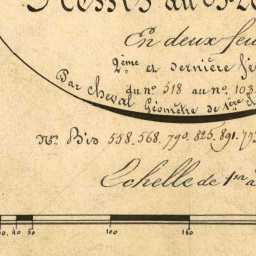 En deux feu
2ème et dernière fe
du no. 518 au no. 103
Par Cheval Géomètre de 1ère cl
Nos. Bis 558. 568. 790. 825. 891. 79
Echelle de 1 à
50 100 150